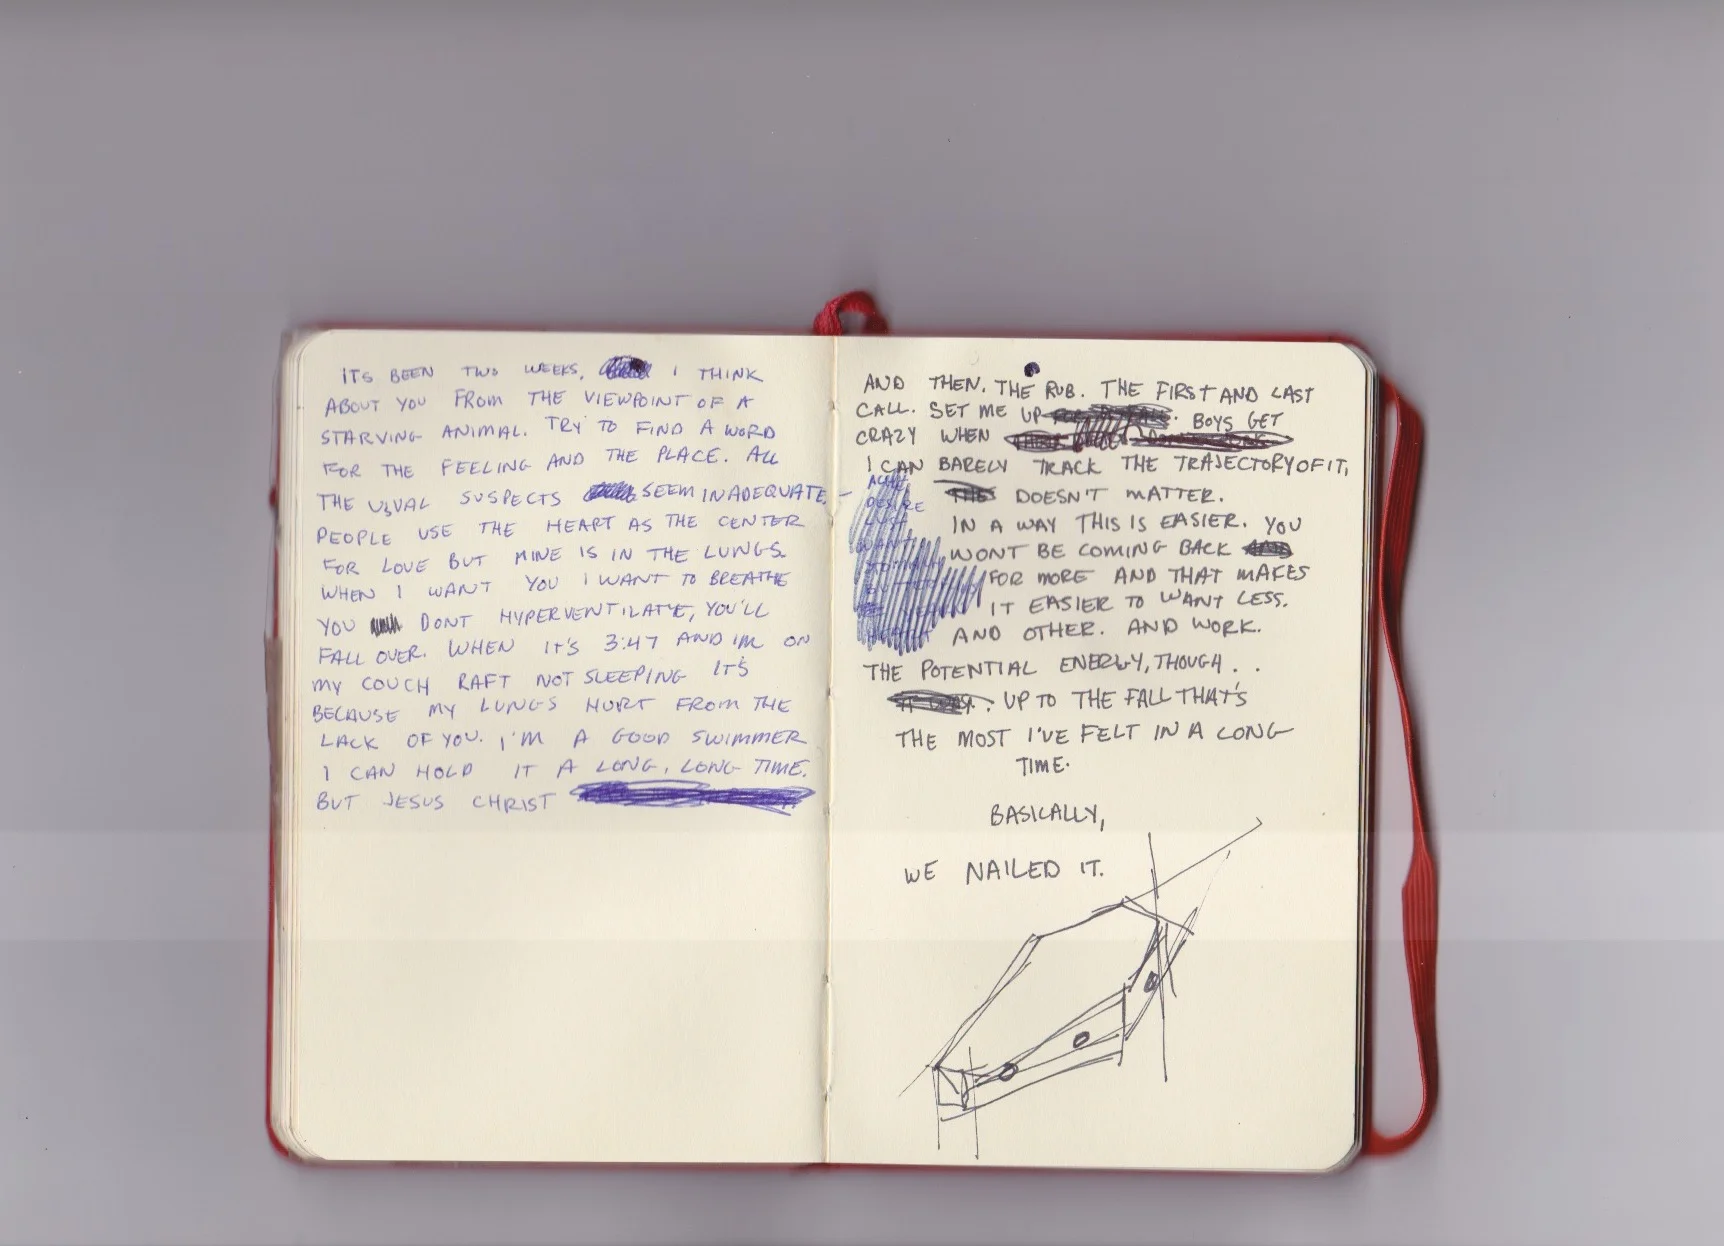 ITS BEEN TWO WEEKS, I THINK
ABOUT YOU FROM THE VIEWPOINT OF A
STARVING ANIMAL. TRY TO FIND A WORD
FOR THE FEELING AND THE PLACE. ALL
THE USUAL SUSPECTS SEEM INADEQUATE. –
PEOPLE USE THE HEART AS THE CENTER
FOR LOVE BUT MINE IS IN THE LUNGS.
WHEN I WANT YOU I WANT TO BREATHE
YOU DONT HYPERVENTILATE, YOU'LL
FALL OVER. WHEN IT'S 3:47 AND IM ON
MY COUCH RAFT NOT SLEEPING IT'S
BECAUSE MY LUNGS HURT FROM THE
LACK OF YOU. I'M A GOOD SWIMMER
I CAN HOLD IT A LONG, LONG TIME.
BUT JESUS CHRIST
AND THEN. THE RUB. THE FIRST AND LAST
CALL. SET ME UP FOR A FALL. BOYS GET
CRAZY WHEN
I CAN BARELY TRACK THE TRAJECTORY OF IT,
THIS DOESN'T MATTER.
ACHE
DESIRE
LUST
WANT
IN A WAY THIS IS EASIER. YOU
WONT BE COMING BACK AND
FOR MORE AND THAT MAKES
IT EASIER TO WANT LESS.
AND OTHER. AND WORK.
THE POTENTIAL ENERGY, THOUGH . .
UP TO THE FALL THAT'S
THE MOST I'VE FELT IN A LONG
TIME.
BASICALLY,
WE NAILED IT.